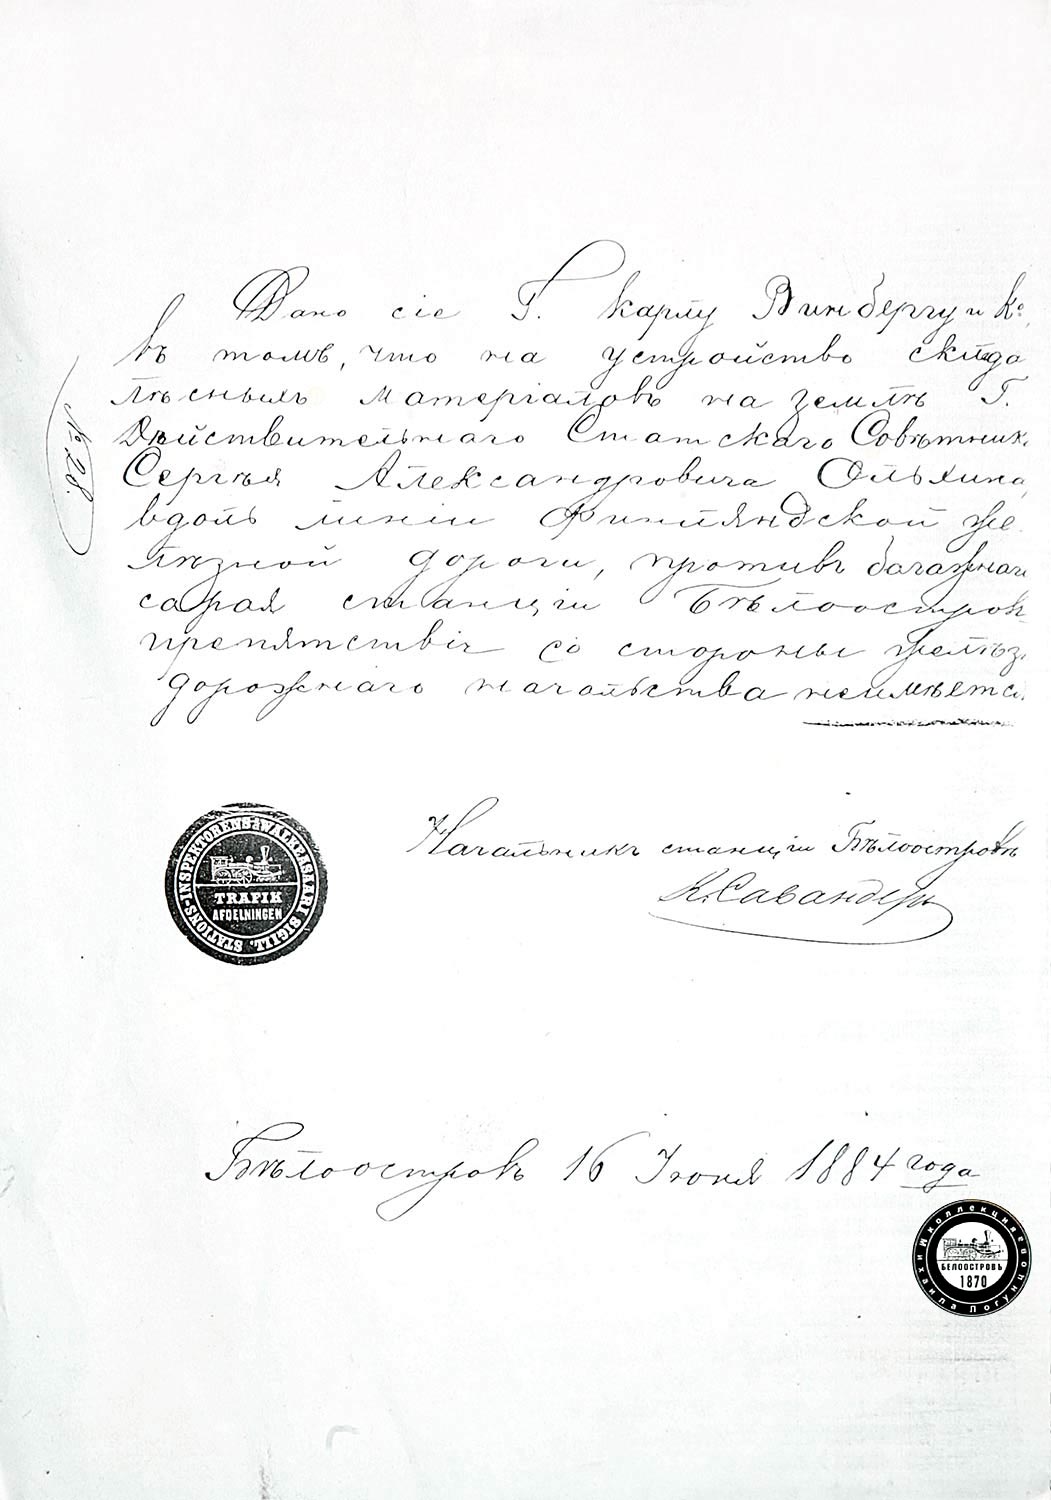 Дано сіе Г. Карлу Винбергу и Ко,
въ томъ, что на устройство склада
лѣсныхъ матеріаловъ на землѣ Г.
Дѣйствительнаго Статскаго Совѣтник
Сергѣя Александровича Ольхина,
вдоль линіи Финляндской Же-
лѣзной дороги, противъ багажнаго
сарая станціи Бѣлоостров
препятствій со стороны желѣзо
дорожнаго начальства неимѣется.
№ 28.
Начальникъ станціи Бѣлоостровъ
К. Савандеръ
STATIONS-INSPEKTORENS WALKEASAARI SIGILL.
TRAFIK
AFDELNINGEN
Бѣлоостровъ 16 Іюня 1884 года
коллекция
Михаила Логунцова
БЕЛООСТРОВЪ
1870